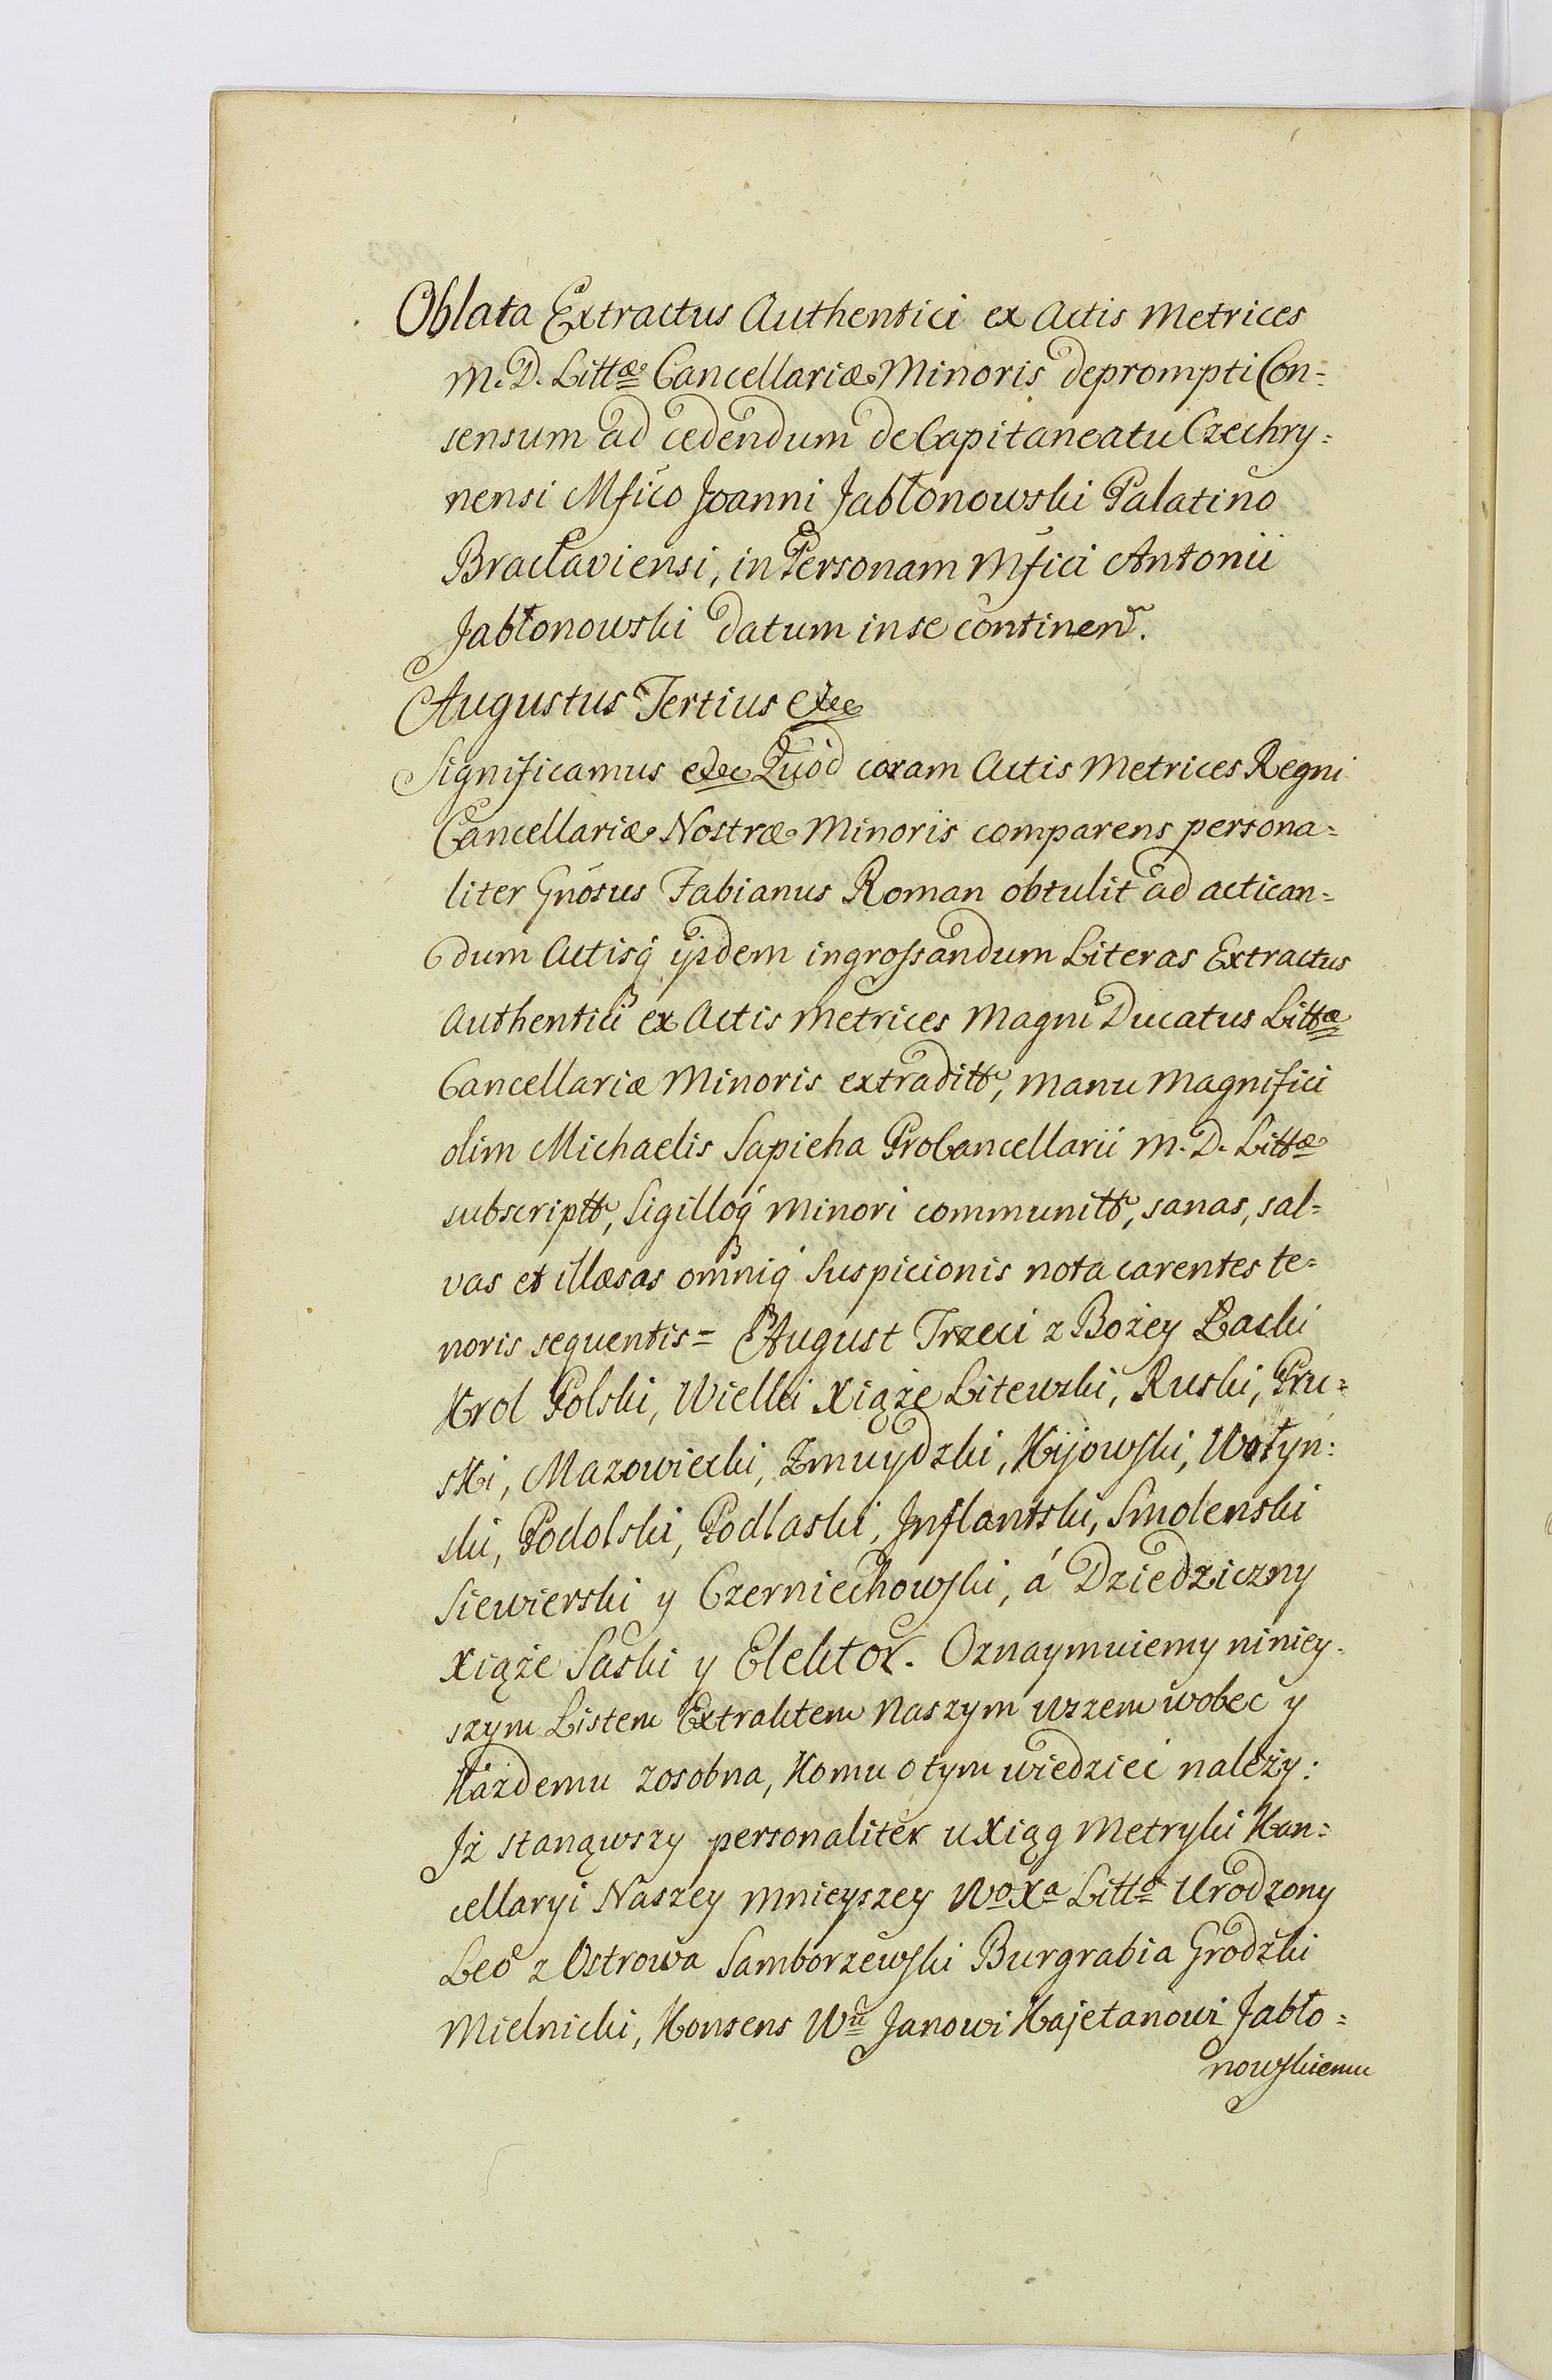 Oblata Extractus Authentici ex Actis Metrices
M. D. Littæ Cancellariæ Minoris deprompti Con=
sensum ad cedendum de Capitaneatu Czechry=
nensi Mfico Joanni Jabłonowski Palatino
Bracłaviensi, in Personam Mfici Antonii
Jabłonowski datum in se continen.
Augustus Tertius etc
Significamus etc Quod coram Actis Metrices Regni
Cancellariæ Nostræ Minoris comparens persona=
liter Gnosus Fabianus Roman obtulit ad actican=
dum Actisq́ ijsdem ingrossandum Literas Extractus
Authentici ex Actis Metrices Magni Ducatus Littæ
Cancellariæ Minoris extraditt, manu Magnifici
olim Michaelis Sapieha ProCancellarii M. D. Littæ
subscriptt, Sigilloq́ Minori communitt, sanas, sal=
vas et illæsas omniq́ Suspicionis nota carentes te=
noris sequentis= August Trzeci z Bożey Łaski
Krol Polski, Wielki Xiąże Litewski, Ruski, Pru=
ski, Mazowiecki, Zmuydzki, Kijowski, Wołyn:
ski, Podolski, Podlaski, Inflantski, Smolenski
Siewierski y Czerniechowski, á Dziedziczny
Xiąże Saski y Elektor. Oznaymuiemy niniey=
szym Listem Extraktem Naszym wszem wobec y
Każdemu zosobna, Komu o tym wiedzieć należy:
Iż stanąwszy personaliter u Xiąg Metryki Kan=
cellaryi Naszey Mnieyszey Wo Xa Litto Urodzony
Leo z Ostrowa Samborzewski Burgrabia Grodzki
Mielnicki, Konsens Wu Janowi Kajetanowi Jabło=
nowskiemu